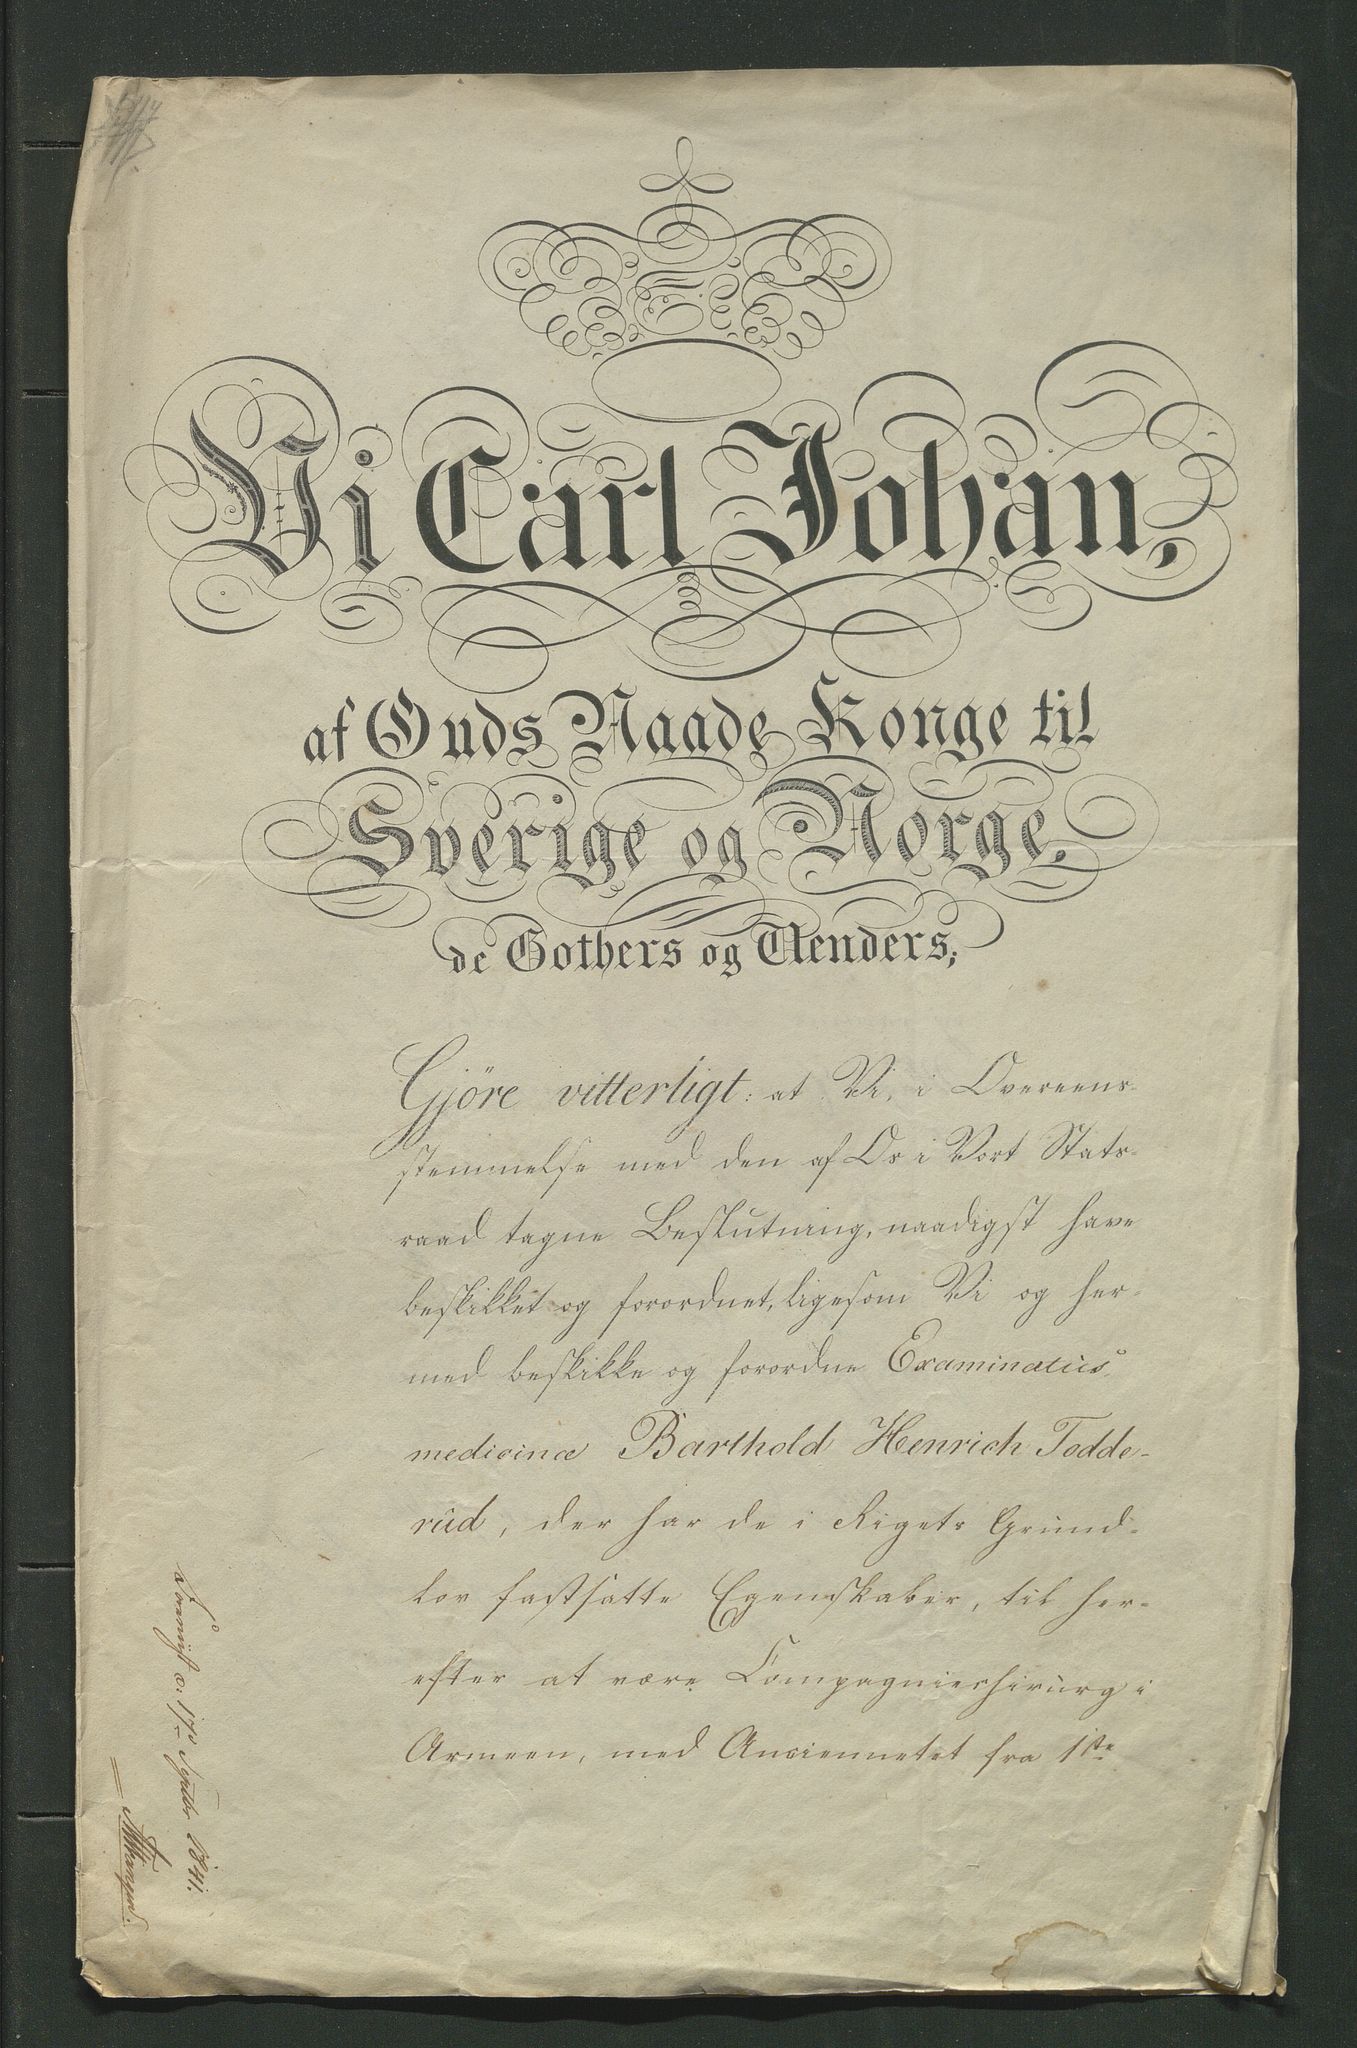 Vi Carl Johan,
af Guds Naade Konge til
Sverige og Norge,
de Gothers og Venders,
Gjöre vitterligt: at Vi, i Overeens-
stemmelse med den af Os i Vort Stats-
raad tagne Beslutning, naadigst have
beskikket og forordnet, ligesom Vi og her-
med beskikke og forordne Examinatus
medicinæ Barthold Henrich Todde-
rud, der har de i Rigets Grund-
lov fastsatte Egenskaber, til her-
efter at være Compagniechirurg i
Armeen, med Anciennetet fra 1ste
17de Septbr 1841.